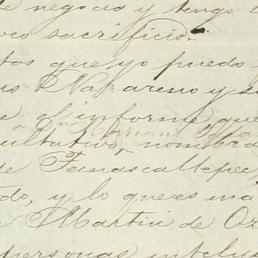 e negocio y tengo
oco sacrificio.
tos que yo puedo
us Nazareno y
e, el informe que
cultativo, nombra
de Temascaltepec
do, y lo que es ma
e Martin de Oz
personas inclus